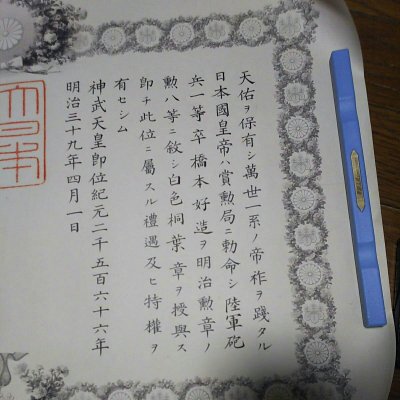 天佑ヲ保有シ萬世一系ノ帝祚ヲ踐タル
日本國皇帝ハ賞勲局ニ勅命シ陸軍砲
兵一等卒橋本好造ヲ明治勲章ノ
勲八等ニ敘シ白色桐葉章ヲ授與ス
即チ此位ニ屬スル禮遇及ヒ特權ヲ
有セシム
神武天皇即位紀元二千五百六十六年
明治三十九年四月一日